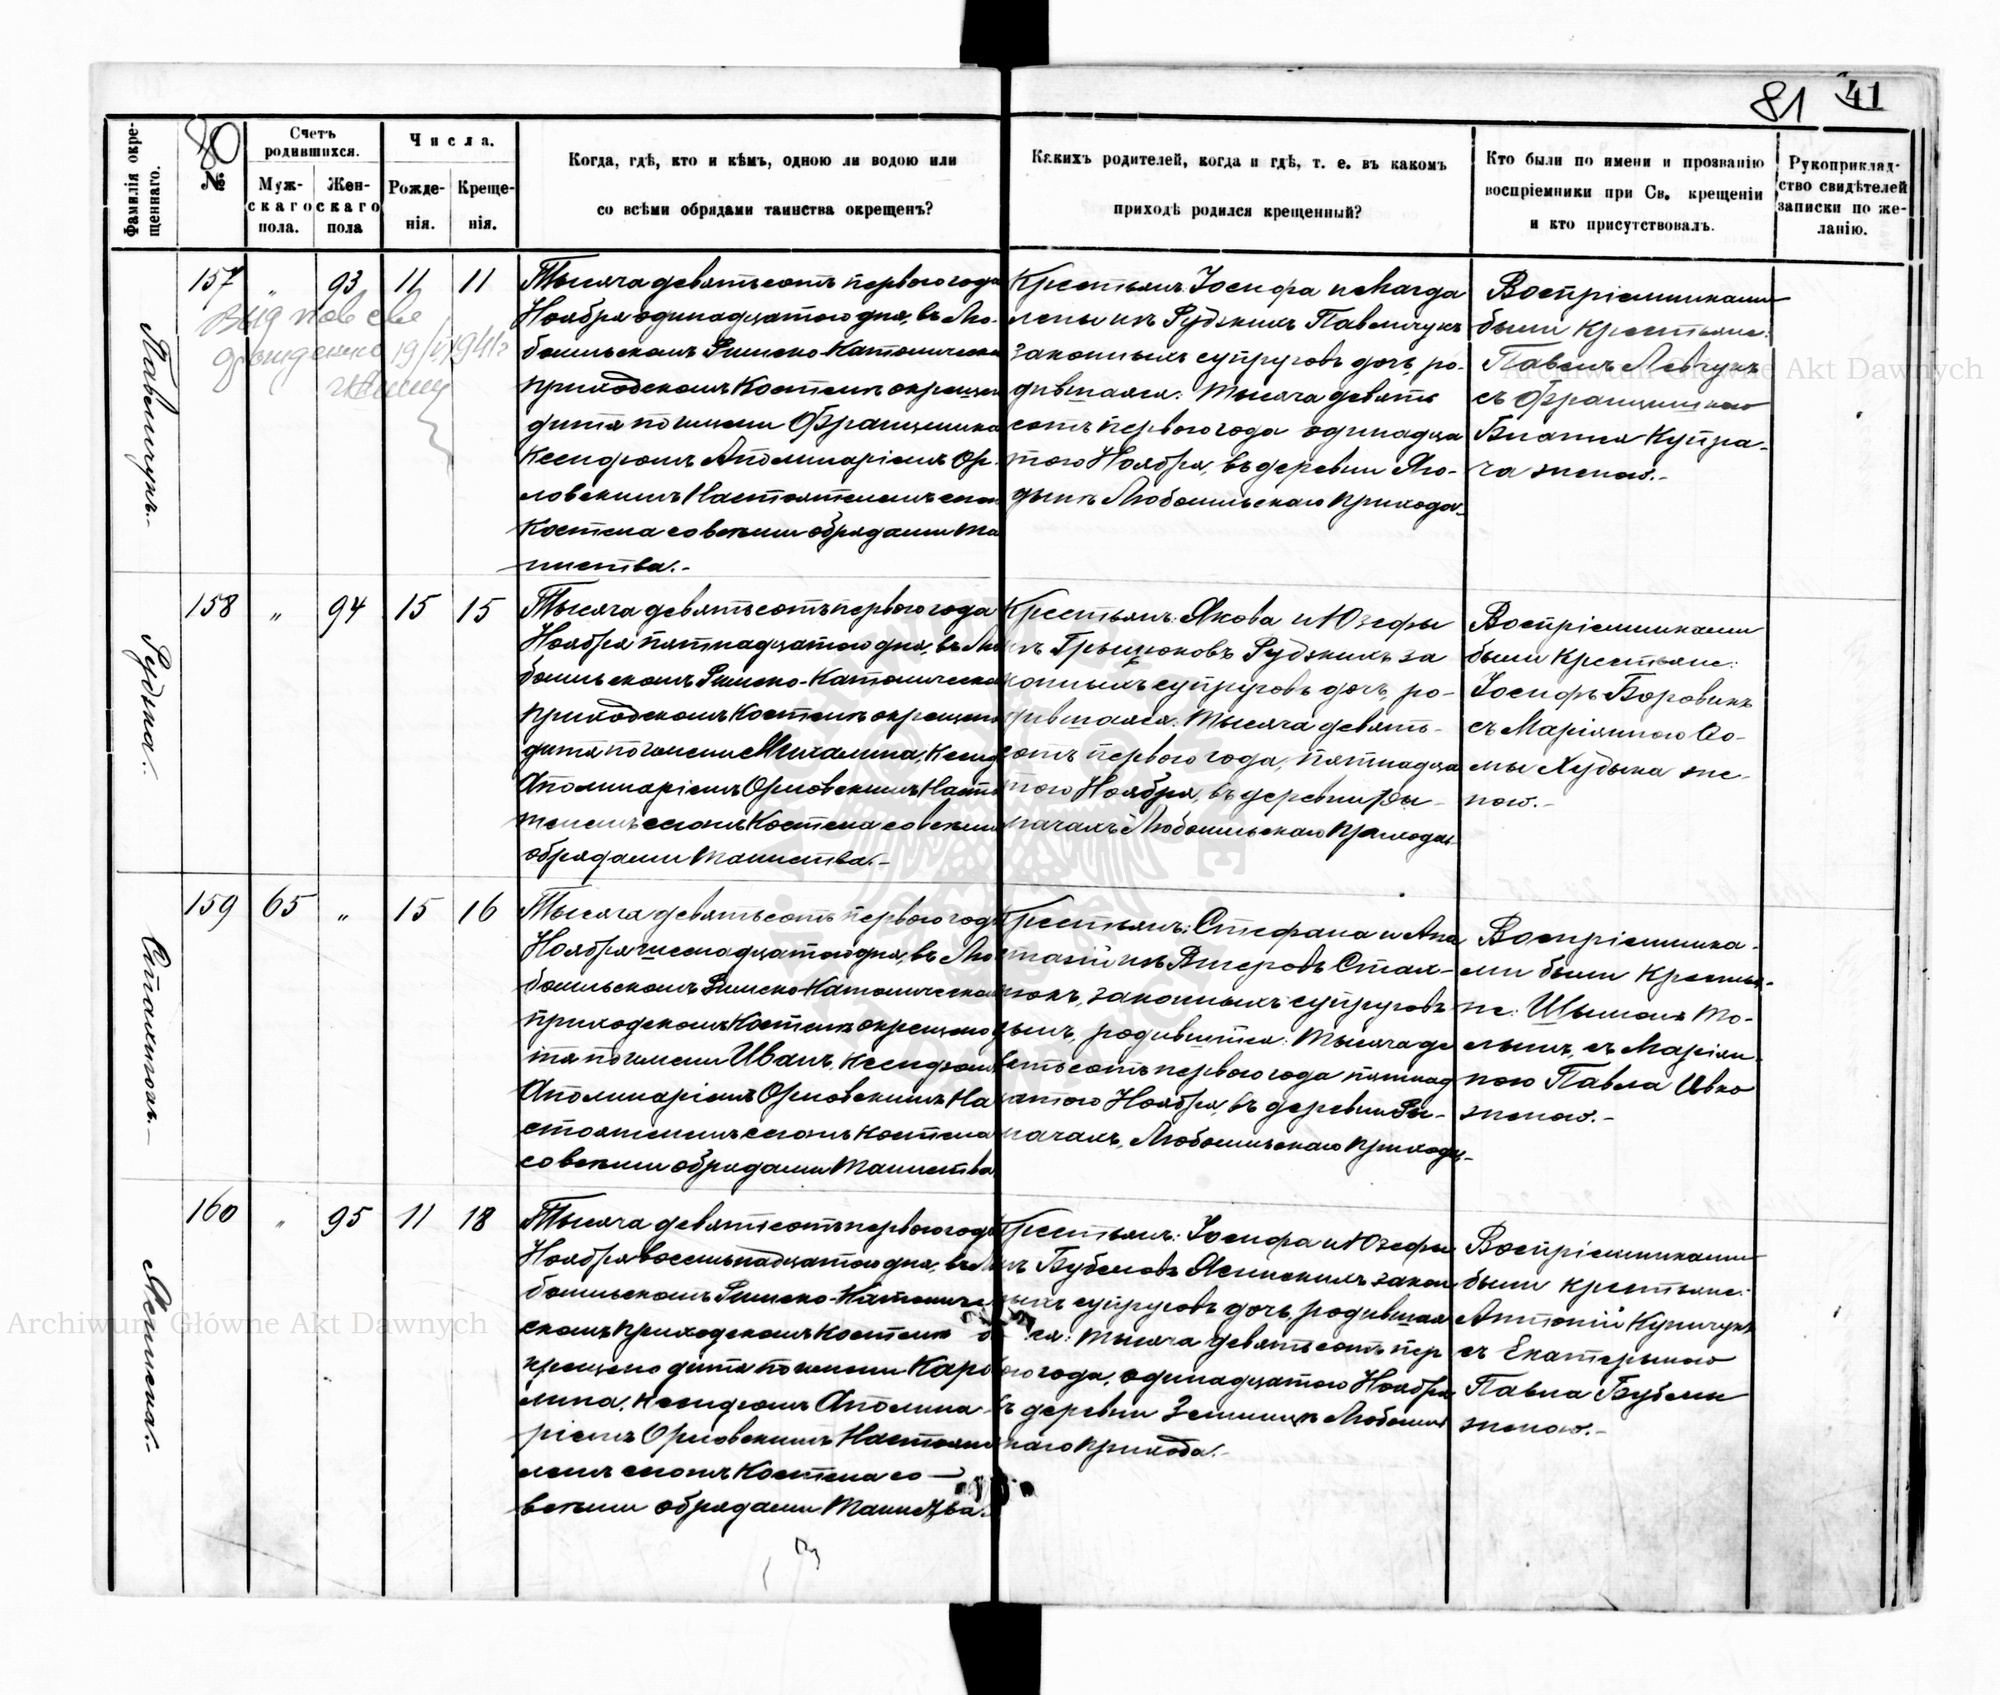 81 41
Фамилія окре-
щеннаго.
80
№
Счетъ
родившихся.
Муж-
скаго
пола.
Жен-
скаго
пола
Числа.
Рожде-
нія.
Креще-
нія.
Когда, гдѣ, кто и кѣмъ, одною ли водою или
со всѣми обрядами таинства окрещенъ?
Какихъ родителей, когда и гдѣ, т. е. въ какомъ
приходѣ родился крещенный?
Кто были по имени и прозванію
воспріемники при Св. крещеніи
и кто присутствовалъ.
Рукоприклад-
ство свидѣтелей
записки по же-
ланію.
157 " 93 11 11
19/VI 1941 г
Павельчукъ.
Тысяча девятьсотъ перваго года
Ноября одинадцатого дня, въ Лю-
бомльскомъ Римско-Католическом
приходскомъ Костелѣ окрещен
дитя по имени Францишка
Ксендзомъ Аполинаріемъ Ор-
ловскимъ Настоятелемъ сего
Костела со всѣми обрядами Та
инства.-
Крестьянъ Іосифа и Магда
лены изъ Рудзкихъ Павельчукъ
законныхъ супруговъ дочь, ро-
дившаяся: тысяча девять
сотъ перваго года одинадца
того Ноября, въ деревни Яго-
дынѣ Любомльскаго прихода.-
Воспріемниками
были Крестьяне:
Павелъ Левчукъ
съ Францишкою
Игнатія Купра-
ча женою.-
158 " 94 15 15
Рудзка.-
Тысяча девятьсотъ перваго года
Ноября пятнадцатого дня, въ Лю
бомльскомъ Римско-Католическом
приходскомъ Костелѣ окрещено
дитя по имени Михалина, Ксенд
Аполинаріемъ Орловскимъ Насто
телемъ сегожъ Костела со всѣми
обрядами Таинства.-
Крестьянъ: Якова и Юзефы
изъ Грыцюковъ Рудзкихъ за
конныхъ супруговъ дочь, ро-
дившаяся: тысяча девять-
сотъ перваго года, пятнадца
того Ноября, въ деревни Ры-
мачахъ Любомльскаго прихода.-
Воспріемниками
были Крестьяне:
Іосифъ Боровикъ
съ Маріянною Ѳо-
мы Худыка же-
ною.-
159 65 " 15 16
Стахнюкъ.-
Тысяча девятьсотъ перваго год
Ноября шестнадцатого дня, въ Лю
бомльскомъ Римско-Католическом
приходскомъ Костелѣ окрещено д
тя по имени Иванъ, Ксендзомъ
Аполинаріемъ Орловскимъ На
стоятелемъ сегожъ Костела
со всѣми обрядами Таинства
Крестьянъ: Стефана и Ана
Стах-
нюкъ, законныхъ супруговъ
сынъ, родившійся: тысяча де
вятьсотъ перваго года пятнад
цатого Ноября, въ деревни Ры-
мачахъ, Любомльскаго прихода.-
Воспріемника-
ми были крестья-
не: Шымонъ
съ Маріян-
ною Павла Ивко
женою.-
160 " 95 11 18
Ясинская.-
Тысяча девятьсотъ перваго год
Ноября восемьнадцатого дня, въ Лю
бомльскомъ Римско-Католиче
скомъ приходскомъ Костелѣ о
крещено дитя по имени Каро
лина, Ксендзомъ Аполина
ріемъ Орловскимъ Настояте
лемъ сегожъ Костела со
всѣми обрядами Таинства.
Крестьянъ: Іосифа и Юзефы
изъ Бубеловъ Ясинскихъ закон
ныхъ супруговъ дочь, родившая
ся: тысяча девятьсотъ пер
ваго года, одинадцатого Ноября
въ деревни Любомль
скаго прихода.-
Воспріемниками
были крестьяне:
Антоній
съ Екатериною
Павла Бубелы
женою.-
Archiwum Główne Akt Dawnych
Archiwum Główne Akt Dawnych